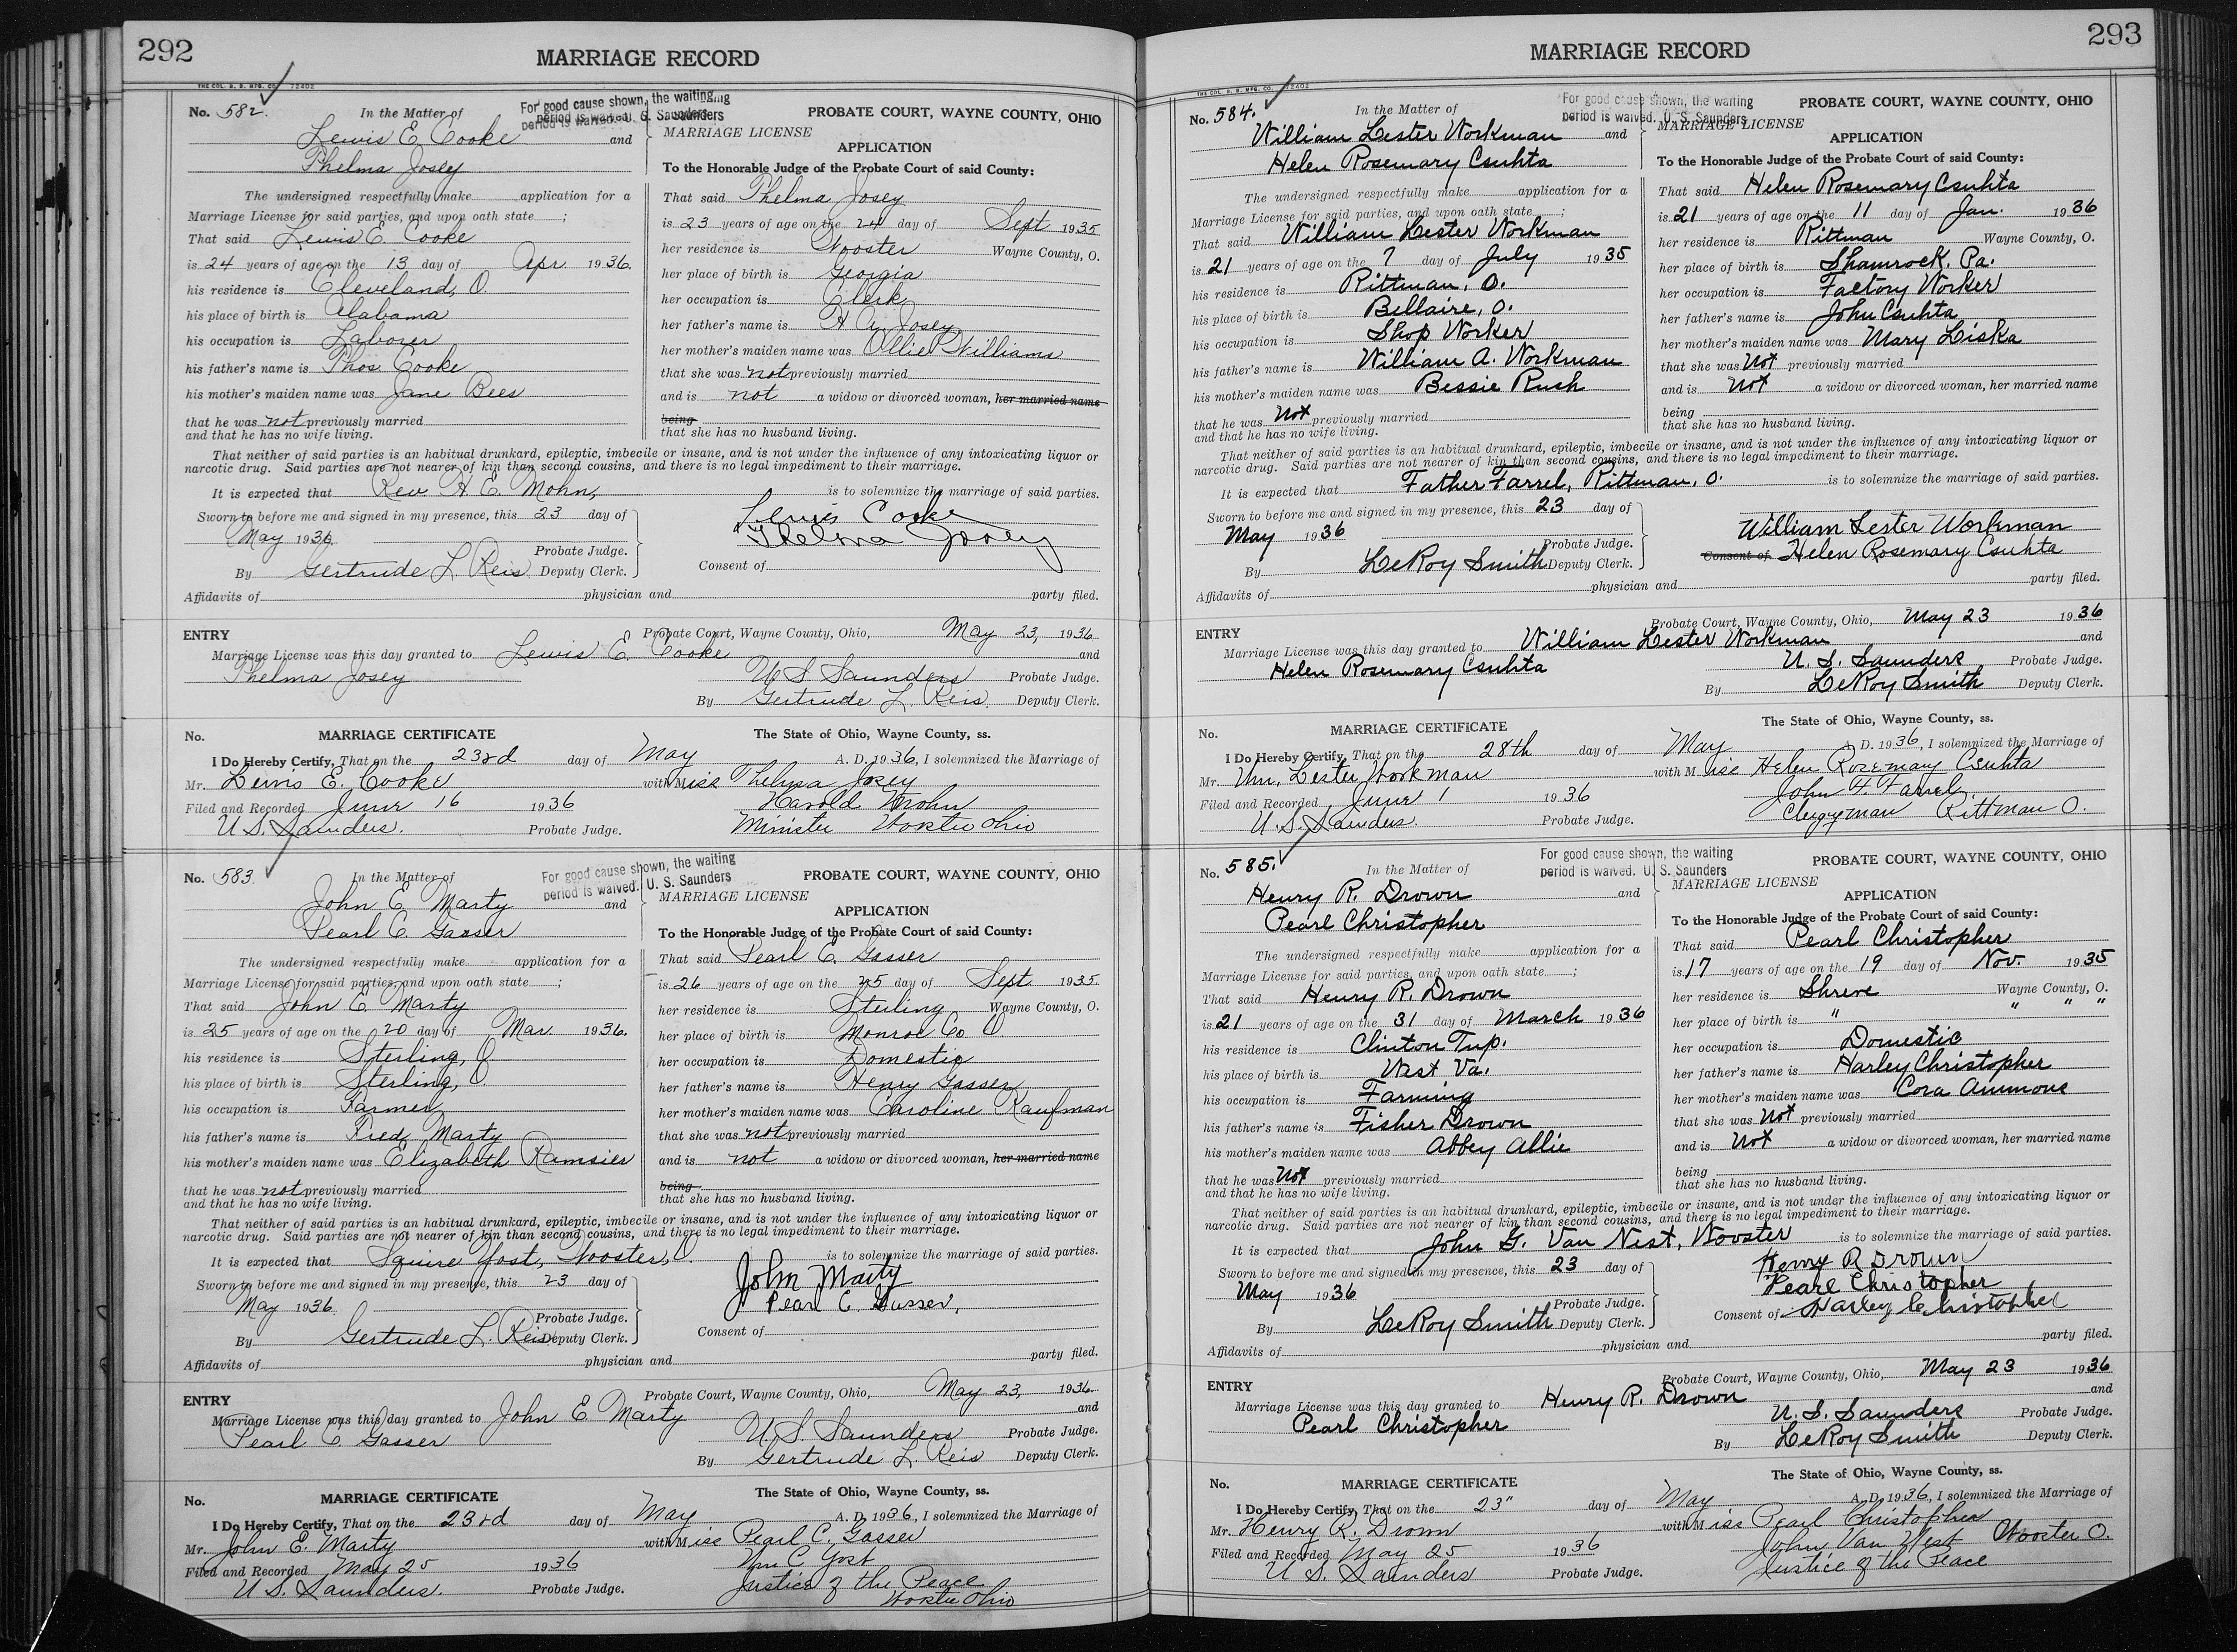 292
MARRIAGE RECORD
THE COL. B. B. MFG. CO. 72402
No. 582. In the Matter of
For good cause shown, the waiting
period is waived. U. S. Saunders
PROBATE COURT, WAYNE COUNTY, OHIO
Lewis E. Cooke and
Thelma Josey
MARRIAGE LICENSE
APPLICATION
To the Honorable Judge of the Probate Court of said County:
The undersigned respectfully make application for a
Marriage License for said parties, and upon oath state ;
That said Lewis E. Cooke
is 24 years of age on the 13 day of Apr. 1936.
his residence is Cleveland, O.
his place of birth is Alabama
his occupation is Laborer
his father's name is Thos. Cooke
his mother's maiden name was Jane Bees
that he was not previously married
and that he has no wife living.
That said Thelma Josey
is 23 years of age on the 24 day of Sept 1935
her residence is Wooster Wayne County, O.
her place of birth is Georgia
her occupation is Clerk
her father's name is H. A. Josey
her mother's maiden name was Ollie Williams
that she was not previously married
and is not a widow or divorced woman, her married name
being
that she has no husband living.
That neither of said parties is an habitual drunkard, epileptic, imbecile or insane, and is not under the influence of any intoxicating liquor or
narcotic drug. Said parties are not nearer of kin than second cousins, and there is no legal impediment to their marriage.
It is expected that Rev H. E. Mohn, is to solemnize the marriage of said parties.
Sworn to before me and signed in my presence, this 23 day of
May 1936.
Probate Judge.
By Gertrude L. Reis Deputy Clerk.
Lewis Cooke
Thelma Josey
Consent of
Affidavits of physician and party filed.
ENTRY Probate Court, Wayne County, Ohio, May 23, 1936
Marriage License was this day granted to Lewis E. Cooke and
Thelma Josey
U S Saunders Probate Judge.
By Gertrude L. Reis. Deputy Clerk.
No. MARRIAGE CERTIFICATE The State of Ohio, Wayne County, ss.
I Do Hereby Certify, That on the 23rd day of May A. D. 1936, I solemnized the Marriage of
Mr. Lewis E. Cooke with Miss Thelma Josey
Filed and Recorded June 16 1936 Harold Mohn
U.S. Saunders. Probate Judge. Minister Wooster Ohio
No. 583. In the Matter of
For good cause shown, the waiting
period is waived. U. S. Saunders
PROBATE COURT, WAYNE COUNTY, OHIO
John E. Marty and
Pearl C. Gasser
MARRIAGE LICENSE
APPLICATION
To the Honorable Judge of the Probate Court of said County:
The undersigned respectfully make application for a
Marriage License for said parties, and upon oath state ;
That said John E. Marty
is 25 years of age on the 20 day of Mar. 1936.
his residence is Sterling, O.
his place of birth is Sterling, O.
his occupation is Farmer
his father's name is Fred Marty
his mother's maiden name was Elizabeth Ramsier
that he was not previously married
and that he has no wife living.
That said Pearl C. Gasser
is 26 years of age on the 25 day of Sept. 1935.
her residence is Sterling Wayne County, O.
her place of birth is Monroe Co O.
her occupation is Domestic
her father's name is Henry Gasser
her mother's maiden name was Caroline Kaufman
that she was not previously married
and is not a widow or divorced woman, her married name
being
that she has no husband living.
That neither of said parties is an habitual drunkard, epileptic, imbecile or insane, and is not under the influence of any intoxicating liquor or
narcotic drug. Said parties are not nearer of kin than second cousins, and there is no legal impediment to their marriage.
It is expected that Squire Yost, Wooster, O. is to solemnize the marriage of said parties.
Sworn to before me and signed in my presence, this 23 day of
May 1936.
Probate Judge.
By Gertrude L. Reis Deputy Clerk.
John Marty
Pearl C. Gasser,
Consent of
Affidavits of physician and party filed.
ENTRY Probate Court, Wayne County, Ohio, May 23, 1936
Marriage License was this day granted to John E. Marty and
Pearl C. Gasser
U. S. Saunders Probate Judge.
By Gertrude L. Reis Deputy Clerk.
No. MARRIAGE CERTIFICATE The State of Ohio, Wayne County, ss.
I Do Hereby Certify, That on the 23rd day of May A. D. 1936, I solemnized the Marriage of
Mr. John E. Marty with Miss Pearl C. Gasser
Filed and Recorded May 25 1936 Wm C Yost
U S. Saunders. Probate Judge. Justice of the Peace
Wooster Ohio
293
MARRIAGE RECORD
THE COL. B. B. MFG. CO. 72402
No. 584. In the Matter of
For good cause shown, the waiting
period is waived. U. S. Saunders
PROBATE COURT, WAYNE COUNTY, OHIO
William Lester Workman and
Helen Rosemary Csuhta
MARRIAGE LICENSE
APPLICATION
To the Honorable Judge of the Probate Court of said County:
The undersigned respectfully make application for a
Marriage License for said parties, and upon oath state ;
That said William Lester Workman
is 21 years of age on the 7 day of July 1935
his residence is Rittman, O.
his place of birth is Bellaire, O.
his occupation is Shop Worker
his father's name is William A. Workman
his mother's maiden name was Bessie Rush
that he was Not previously married
and that he has no wife living.
That said Helen Rosemary Csuhta
is 21 years of age on the 11 day of Jan. 1936
her residence is Rittman Wayne County, O.
her place of birth is Shamrock, Pa.
her occupation is Factory Worker
her father's name is John Csuhta
her mother's maiden name was Mary Liska
that she was Not previously married
and is Not a widow or divorced woman, her married name
being
that she has no husband living.
That neither of said parties is an habitual drunkard, epileptic, imbecile or insane, and is not under the influence of any intoxicating liquor or
narcotic drug. Said parties are not nearer of kin than second cousins, and there is no legal impediment to their marriage.
It is expected that Father Farrel, Rittman, O. is to solemnize the marriage of said parties.
Sworn to before me and signed in my presence, this 23 day of
May 1936
Probate Judge.
By LeRoy Smith Deputy Clerk.
William Lester Workman
Consent of Helen Rosemary Csuhta
Affidavits of physician and party filed.
ENTRY Probate Court, Wayne County, Ohio, May 23 1936
Marriage License was this day granted to William Lester Workman and
Helen Rosemary Csuhta
U. S. Saunders Probate Judge.
By LeRoy Smith Deputy Clerk.
No. MARRIAGE CERTIFICATE The State of Ohio, Wayne County, ss.
I Do Hereby Certify, That on the 28th day of May A. D. 1936, I solemnized the Marriage of
Mr. Wm. Lester Workman with Miss Helen Rosemary Csuhta
Filed and Recorded June 1 1936 John F. Farrel
U.S. Saunders. Probate Judge. Clergyman Rittman O.
No. 585. In the Matter of
For good cause shown, the waiting
period is waived. U. S. Saunders
PROBATE COURT, WAYNE COUNTY, OHIO
Henry R. Drown and
Pearl Christopher
MARRIAGE LICENSE
APPLICATION
To the Honorable Judge of the Probate Court of said County:
The undersigned respectfully make application for a
Marriage License for said parties, and upon oath state ;
That said Henry R. Drown
is 21 years of age on the 31 day of March 1936
his residence is Clinton Twp.
his place of birth is West Va.
his occupation is Farming
his father's name is Fisher Drown
his mother's maiden name was Abbey Allie
that he was Not previously married
and that he has no wife living.
That said Pearl Christopher
is 17 years of age on the 19 day of Nov. 1935
her residence is Shreve Wayne County, O.
her place of birth is " " " "
her occupation is Domestic
her father's name is Harley Christopher
her mother's maiden name was Cora Ammons
that she was Not previously married
and is Not a widow or divorced woman, her married name
being
that she has no husband living.
That neither of said parties is an habitual drunkard, epileptic, imbecile or insane, and is not under the influence of any intoxicating liquor or
narcotic drug. Said parties are not nearer of kin than second cousins, and there is no legal impediment to their marriage.
It is expected that John G. Van Nest, Wooster is to solemnize the marriage of said parties.
Sworn to before me and signed in my presence, this 23 day of
May 1936
Probate Judge.
By LeRoy Smith Deputy Clerk.
Henry R Drown
Pearl Christopher
Consent of Harley Christopher
Affidavits of physician and party filed.
ENTRY Probate Court, Wayne County, Ohio, May 23 1936
Marriage License was this day granted to Henry R. Drown and
Pearl Christopher
U. S. Saunders Probate Judge.
By LeRoy Smith Deputy Clerk.
No. MARRIAGE CERTIFICATE The State of Ohio, Wayne County, ss.
I Do Hereby Certify, That on the 23" day of May A. D. 1936, I solemnized the Marriage of
Mr. Henry R. Drown with Miss Pearl Christopher
Filed and Recorded May 25 1936 John Van Nest Wooster O.
U S. Saunders Probate Judge. Justice of the Peace